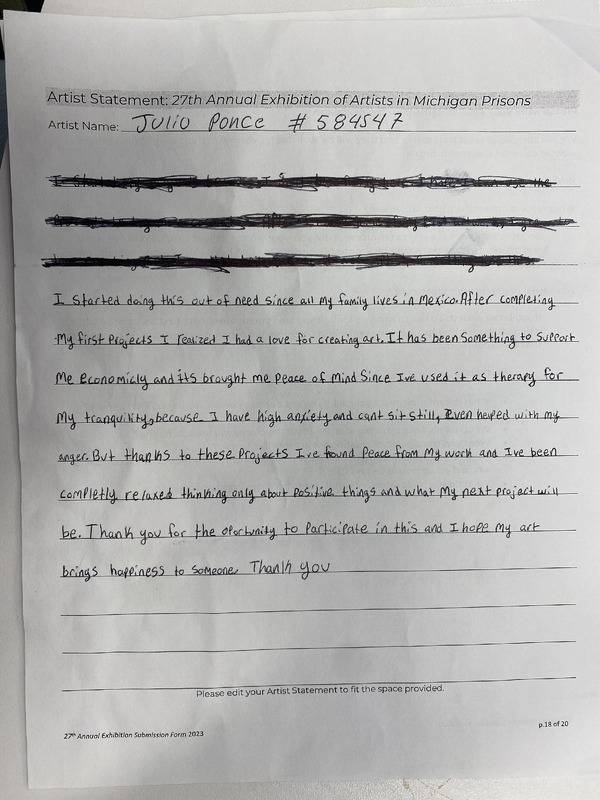 Artist Statement: 27th Annual Exhibition of Artists in Michigan Prisons
Artist Name: Julio Ponce #584547
I started doing this out of need since all my family lives in Mexico. After completing
My first Projects I realized I had a love for creating art. It has been Something to Support
Me Economicly and its brought me Peace of Mind Since Ive used it as therapy for
My tranquility, because I have high anxiety and cant sit still, Even helped with my
anger. But thanks to these Projects I've found Peace from My work and I've been
completly relaxed thinking only about Positive things and what My next project will
be. Thank you for the oportunity to Participate in this and I hope My art
brings happiness to someone. Thank you
Please edit your Artist Statement to fit the space provided.
27th Annual Exhibition Submission Form 2023
p.18 of 20